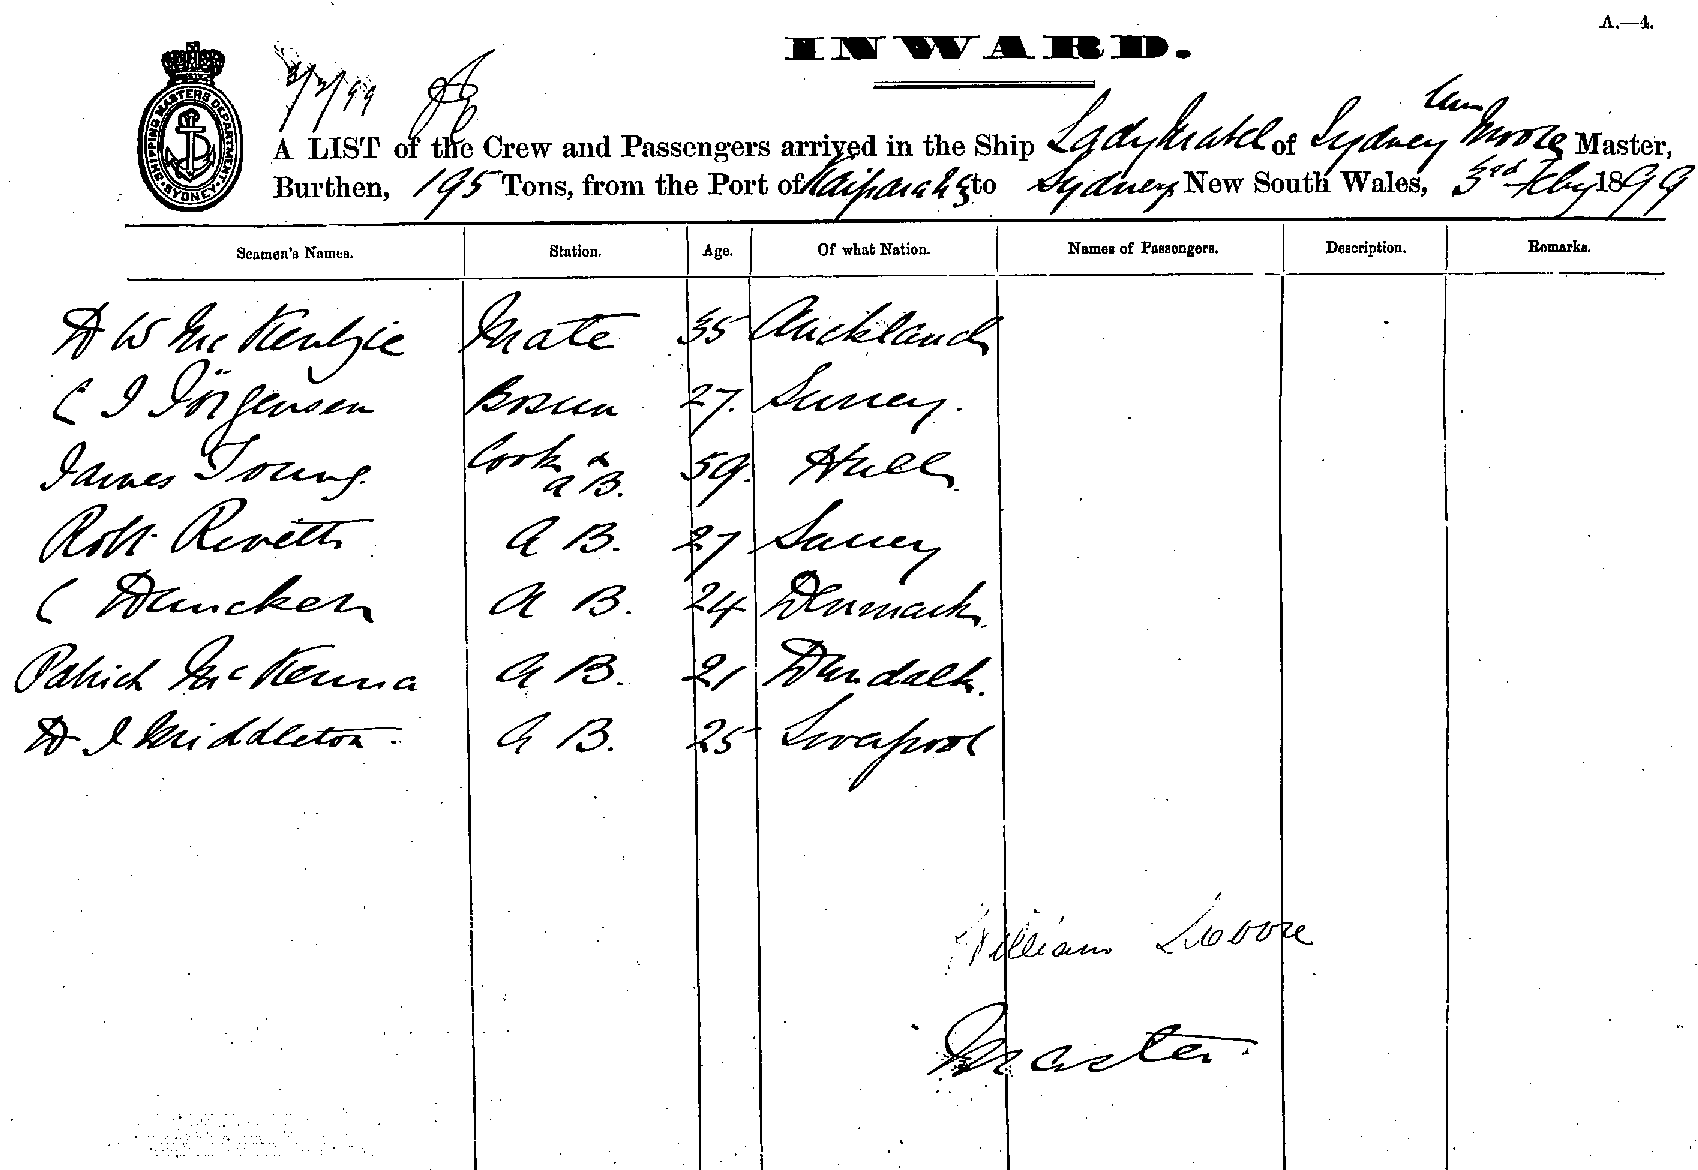 A.—4.
INWARD.
SHIPPING MASTERS DEPARTMENT SYDNEY
Wm
A LIST of the Crew and Passengers arrived in the Ship Lady Mabel of Sydney Moore Master,
Burthen, 195 Tons, from the Port of Kaipara NZ to Sydney New South Wales, 3rd Feby 1899
Seamen's Names. Station. Age. Of what Nation. Names of Passengers. Description. Remarks.
H W McKenzie Mate 35 Auckland
C J Jörgensen Bosun 27. Surrey.
James Young Cook &
A B. 59. Hull
Robt. Revett A B. 27 Surrey
C Duncker A B. 24 Denmark.
Patrick McKenna A B. 21 Dundalk.
H J Middleton A B. 25 Liverpool
William Moore
Master